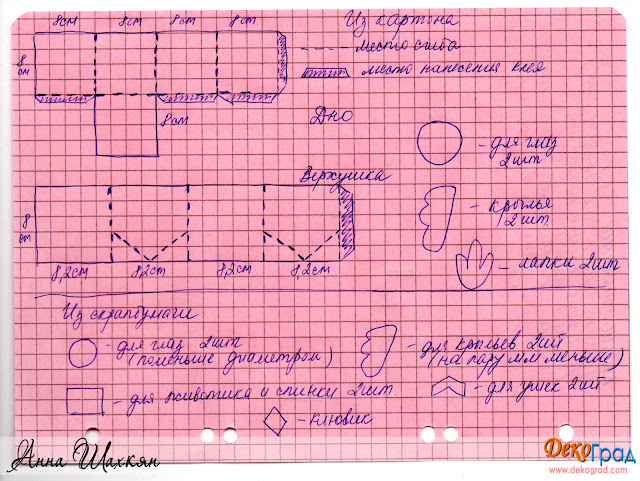 8см 8см 8см 8см
Из картона
--- место сгиба
место нанесения клея
8 см
8см
Дно
- для глаз
2шт
Верхушка
8 см
- крылья
2 шт.
8,2см 8,2см 8,2см 8,2см
- лапки 2шт
Из скрапбумаги
- для глаз 2шт
(поменьше диаметром)
- для крыльев 2шт
(на пару мм меньше)
- для животика и спинки 2шт
- для ушек 2шт
- клювик
Анна Шахкян
ДекоГрад
www.dekograd.com